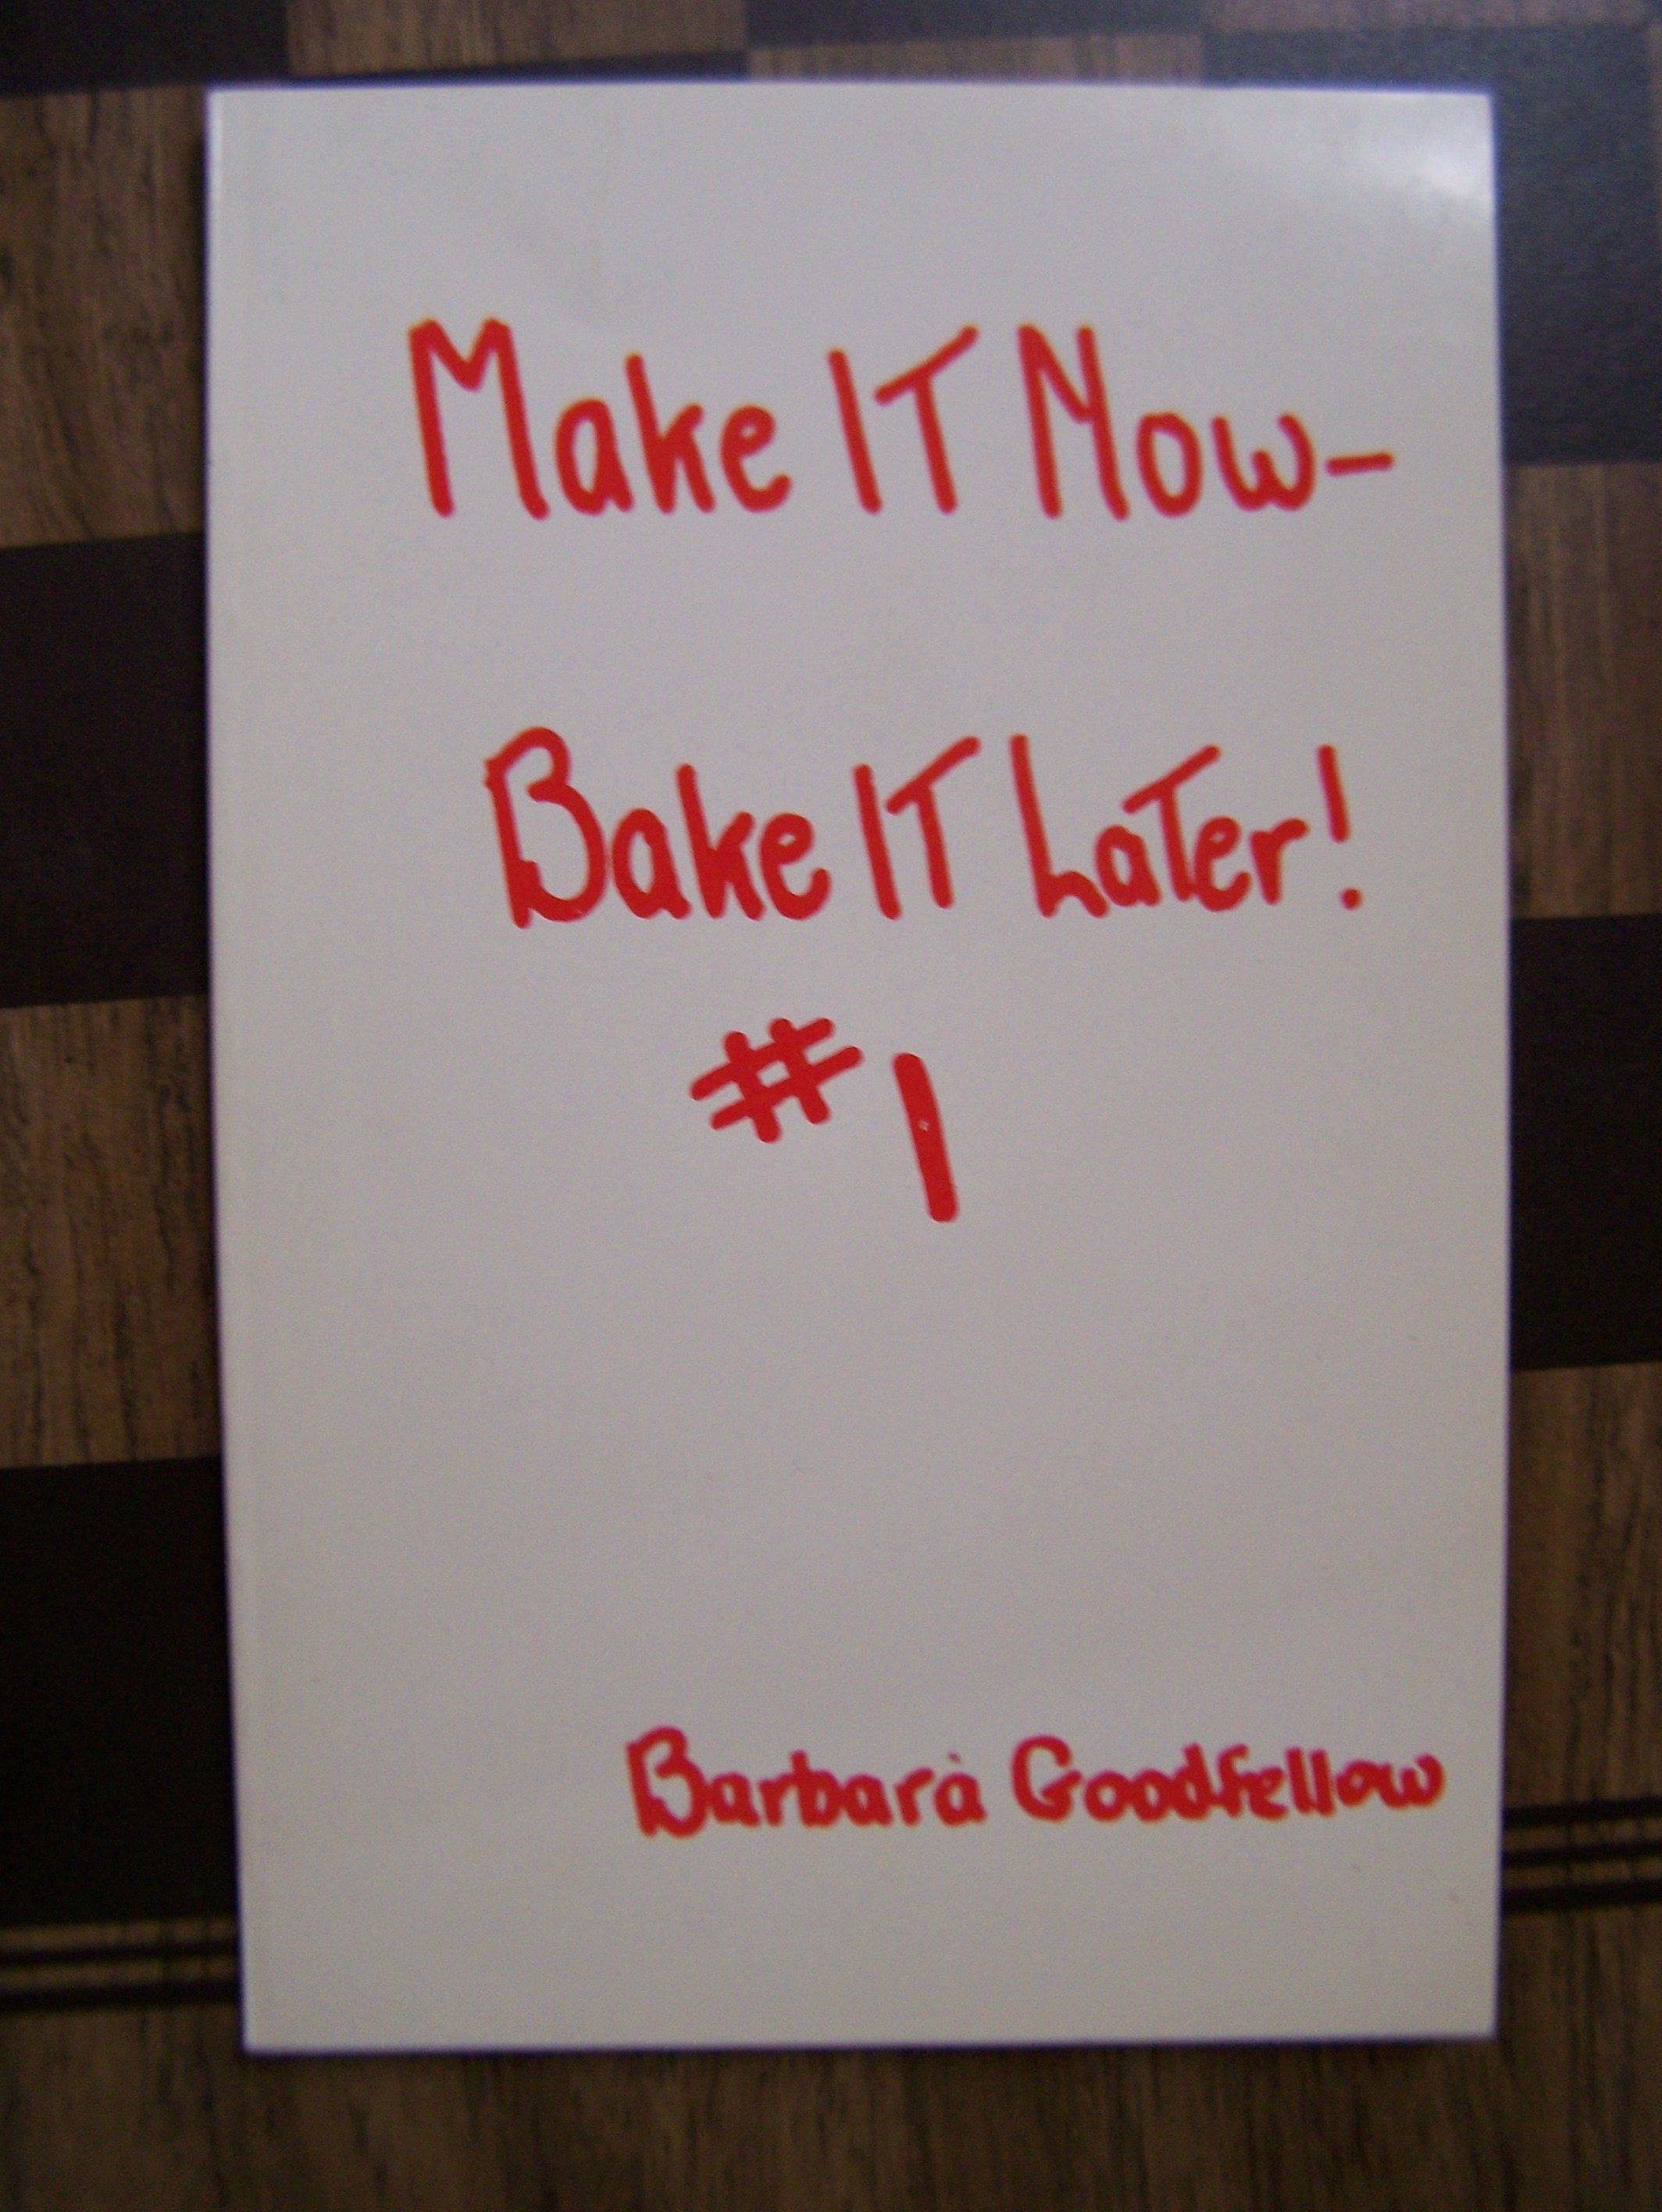 Make IT Now-
Bake IT Later!
#1
Barbara Goodfellow